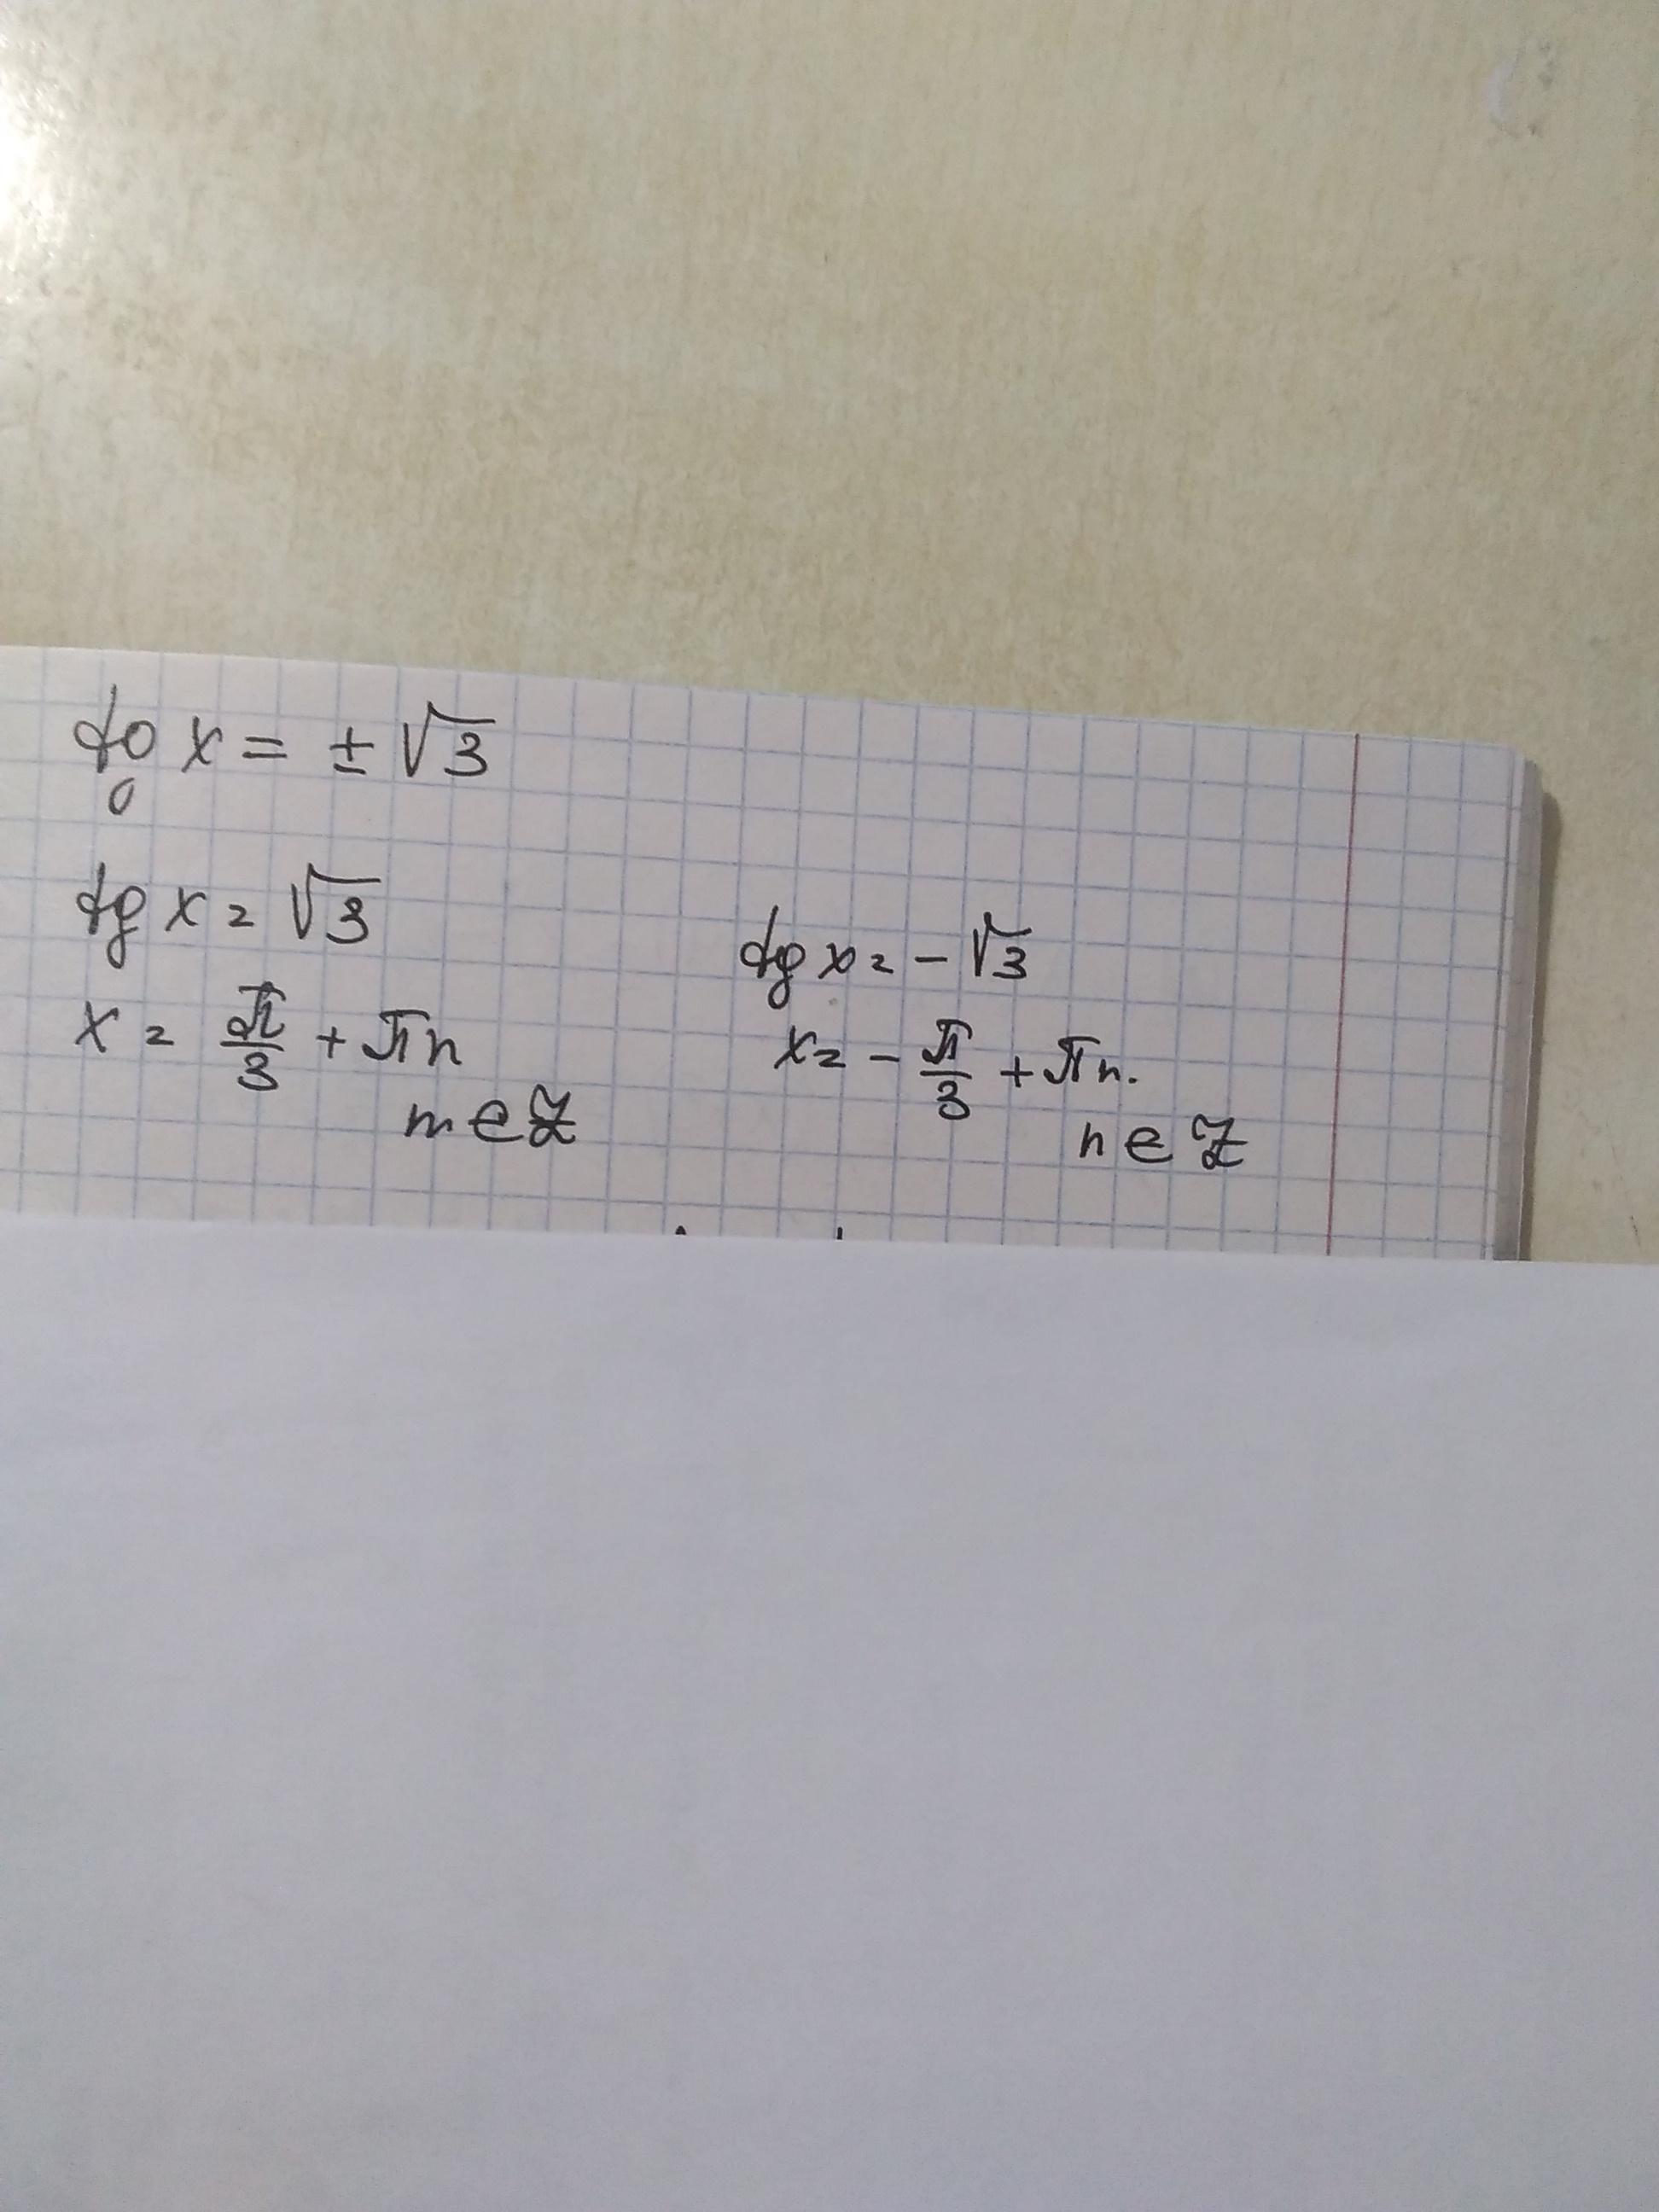 tg x = ± √3
tg x = √3
x = π/3 + πn
n ∈ Z
tg x = - √3
x = - π/3 + πn.
n ∈ Z